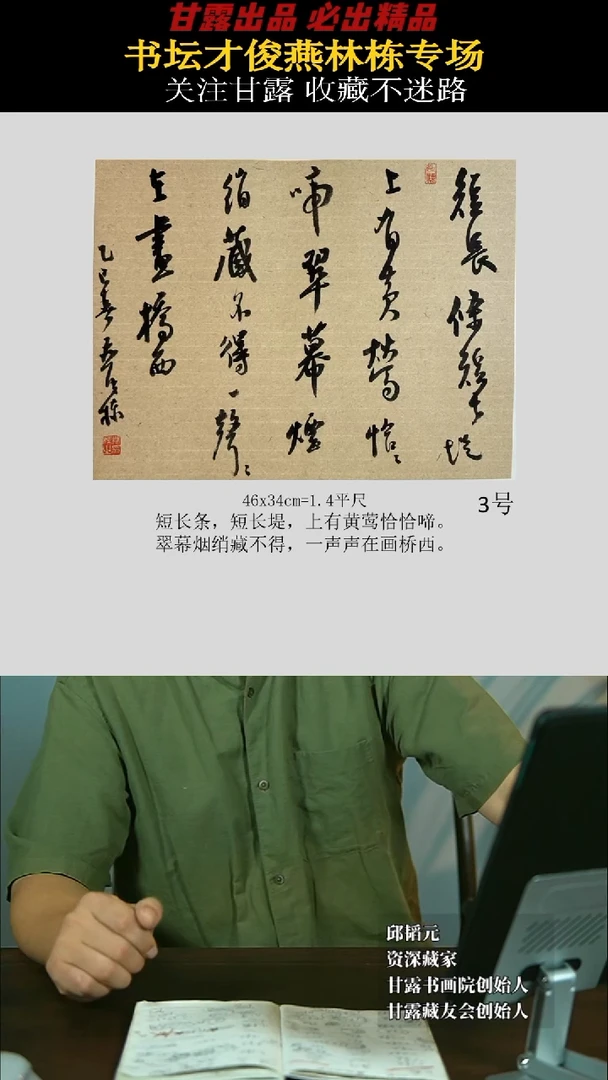 甘露出品 必出精品
书坛才俊燕林栋专场
关注甘露 收藏不迷路
短长条短长堤
上有黄莺恰恰
啼翠幕烟
绡藏不得一声声
在画桥西
乙巳春燕林栋
46x34cm=1.4平尺
3号
短长条，短长堤，上有黄莺恰恰啼。
翠幕烟绡藏不得，一声声在画桥西。
邱韬元
资深藏家
甘露书画院创始人
甘露藏友会创始人